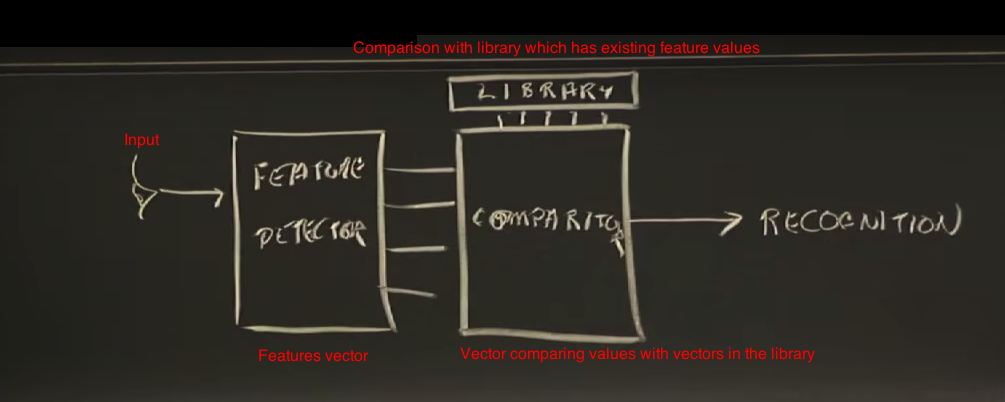 Comparison with library which has existing feature values
LIBRARY
Input
FEATURE
DETECTOR
COMPARITOR
RECOGNITION
Features vector
Vector comparing values with vectors in the library